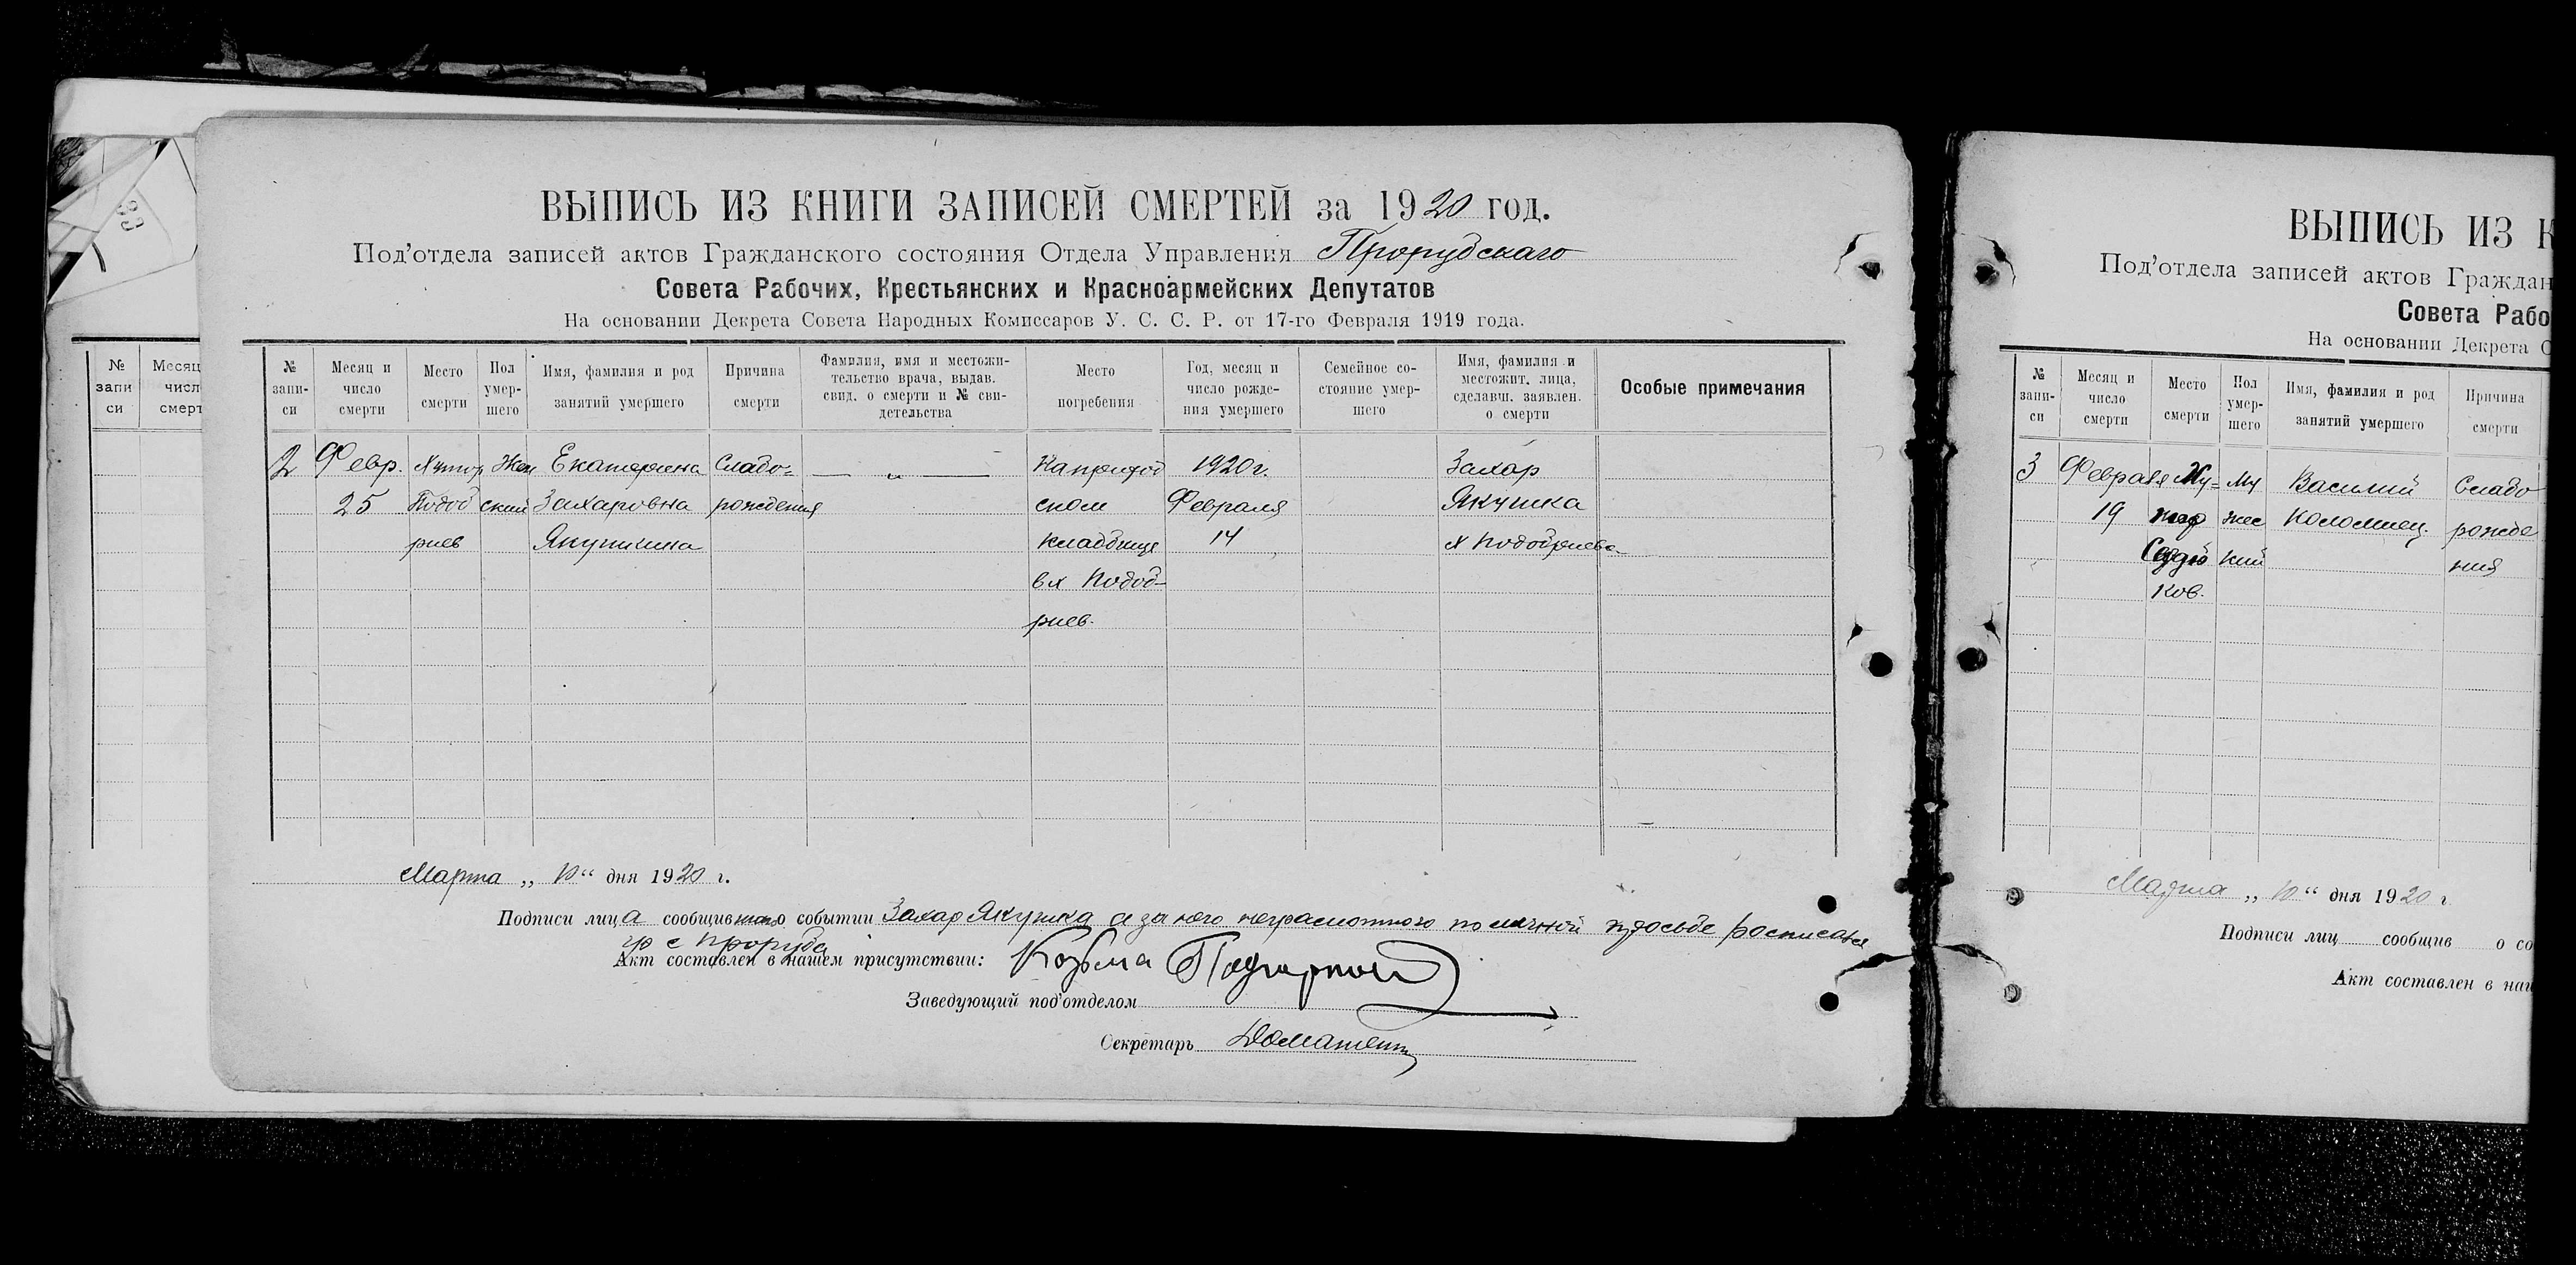 ВЫПИСЬ ИЗ КНИГИ ЗАПИСЕЙ СМЕРТЕЙ за 1920 год.
Под'отдела записей актов Гражданского состояния Отдела Управления Прорубского
Совета Рабочих, Крестьянских и Красноармейских Депутатов
На основании Декрета Совета Народных Комиссаров У. С. С. Р. от 17-го Февраля 1919 года.
№ записи
Месяц и число смерти
Место смерти
Пол умершего
Имя, фамилия и род занятий умершего
Причина смерти
Фамилия, имя и местожительство врача, выдав. свид. о смерти и № свидетельства
Место погребения
Год, месяц и число рождения умершего
Семейное состояние умершего
Имя, фамилия и местожит. лица, сделавш. заявлен. о смерти
Особые примечания
2 Февр. Хутор Жен Екатерина Слабо= — „ — На приход 1920 г. Захар
25 Подоб ский Захаровна рождения ском Февраля Якушка
риев Якушкина кладбище 14 х Подобриева
в х Подоб-
риев.
Марта „ 10 “ дня 1920 г.
Подписи лица сообщившаго о событии Захар Якушка а за него неграмотного по личной просьбе росписался
гр с Проруба
Акт составлен в нашем присутствии: Козьма
Заведующий под'отделом
Секретарь
№ запи си
Месяц числ смерт
33
ВЫПИСЬ ИЗ К
Под'отдела записей актов Граждан
Совета Рабо
На основании Декрета С
№ записи
Месяц и число смерти
Место смерти
Пол умершего
Имя, фамилия и род занятий умершего
Причина смерти
3 Февраля Ху= Му Василий Слабо
19 тор жес Коломиец. рожде
кий ния
ков.
Марта „ 10 “ дня 1920 г
Подписи лиц сообщив о со
Акт составлен в наш